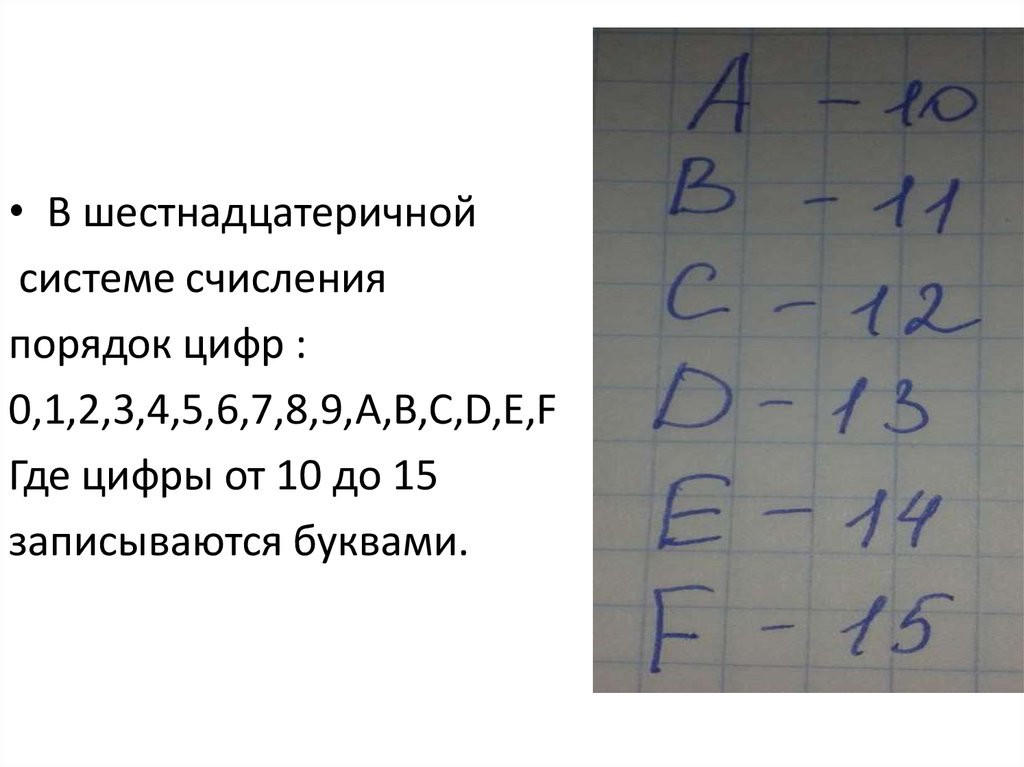 • В шестнадцатеричной
системе счисления
порядок цифр :
0,1,2,3,4,5,6,7,8,9,A,B,C,D,E,F
Где цифры от 10 до 15
записываются буквами.
A - 10
B - 11
C - 12
D - 13
E - 14
F - 15